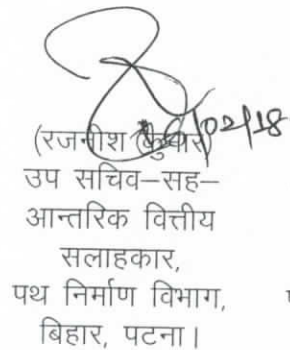 /02/18
(रजनीश कुमार)
उप सचिव–सह–
आन्तरिक वित्तीय
सलाहकार,
पथ निर्माण विभाग,
बिहार, पटना।